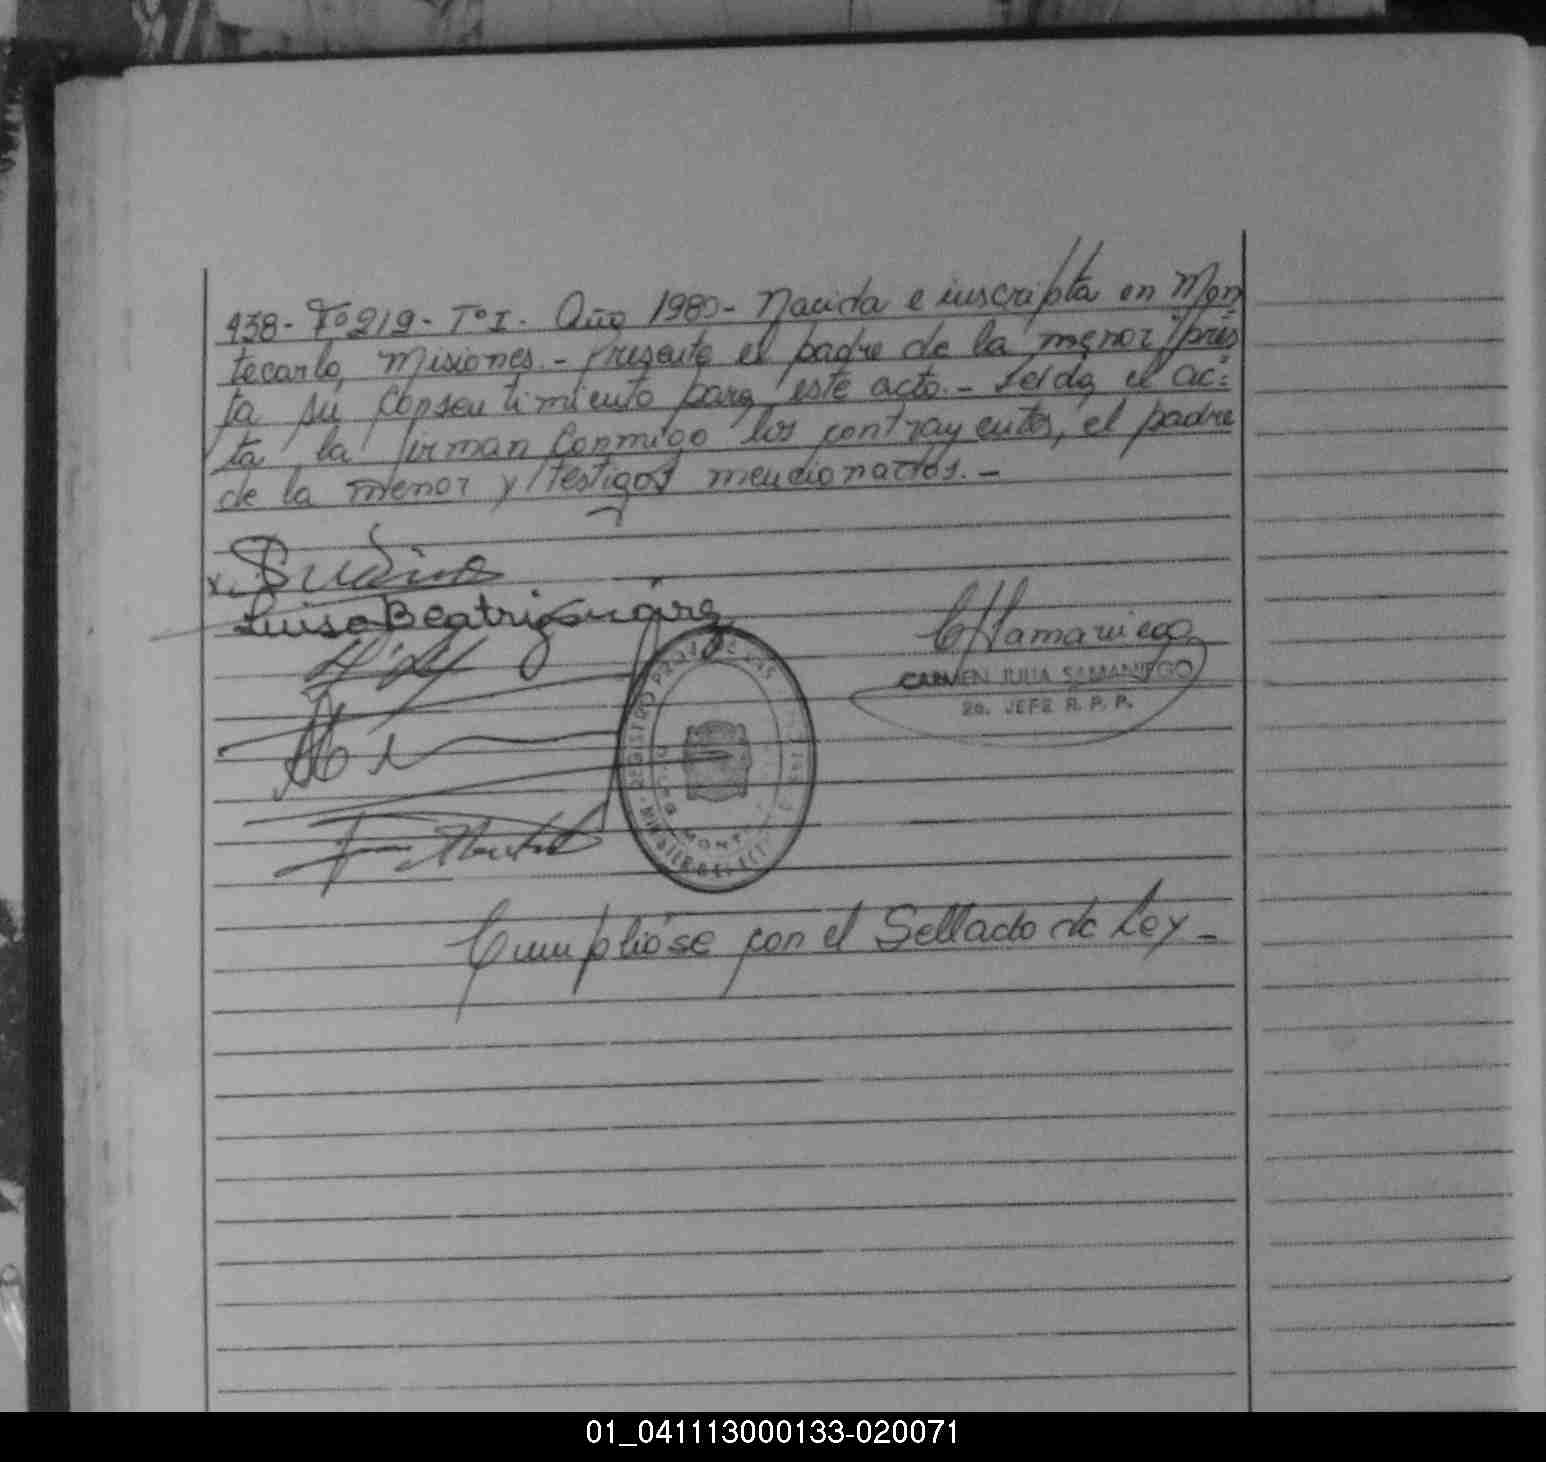 438- Fº 219- TºI. Año 1980- Nacida e inscripta en Mon
tecarlo, Misiones.- Presente el padre de la menor pres
ta su consentimiento para este acto.- Leída el ac=
ta la firman conmigo los contrayentes, el padre
de la menor y testigos mencionados.-
Luisa Beatriz
CARMEN JULIA SAMANIEGO
2a. JEFE R. P. P.
REGISTRO PROV. DE LAS
Cumplióse con el Sellado de Ley-
01_041113000133-020071